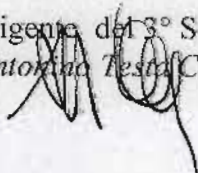 igente del 3° S
ntonino Testa C